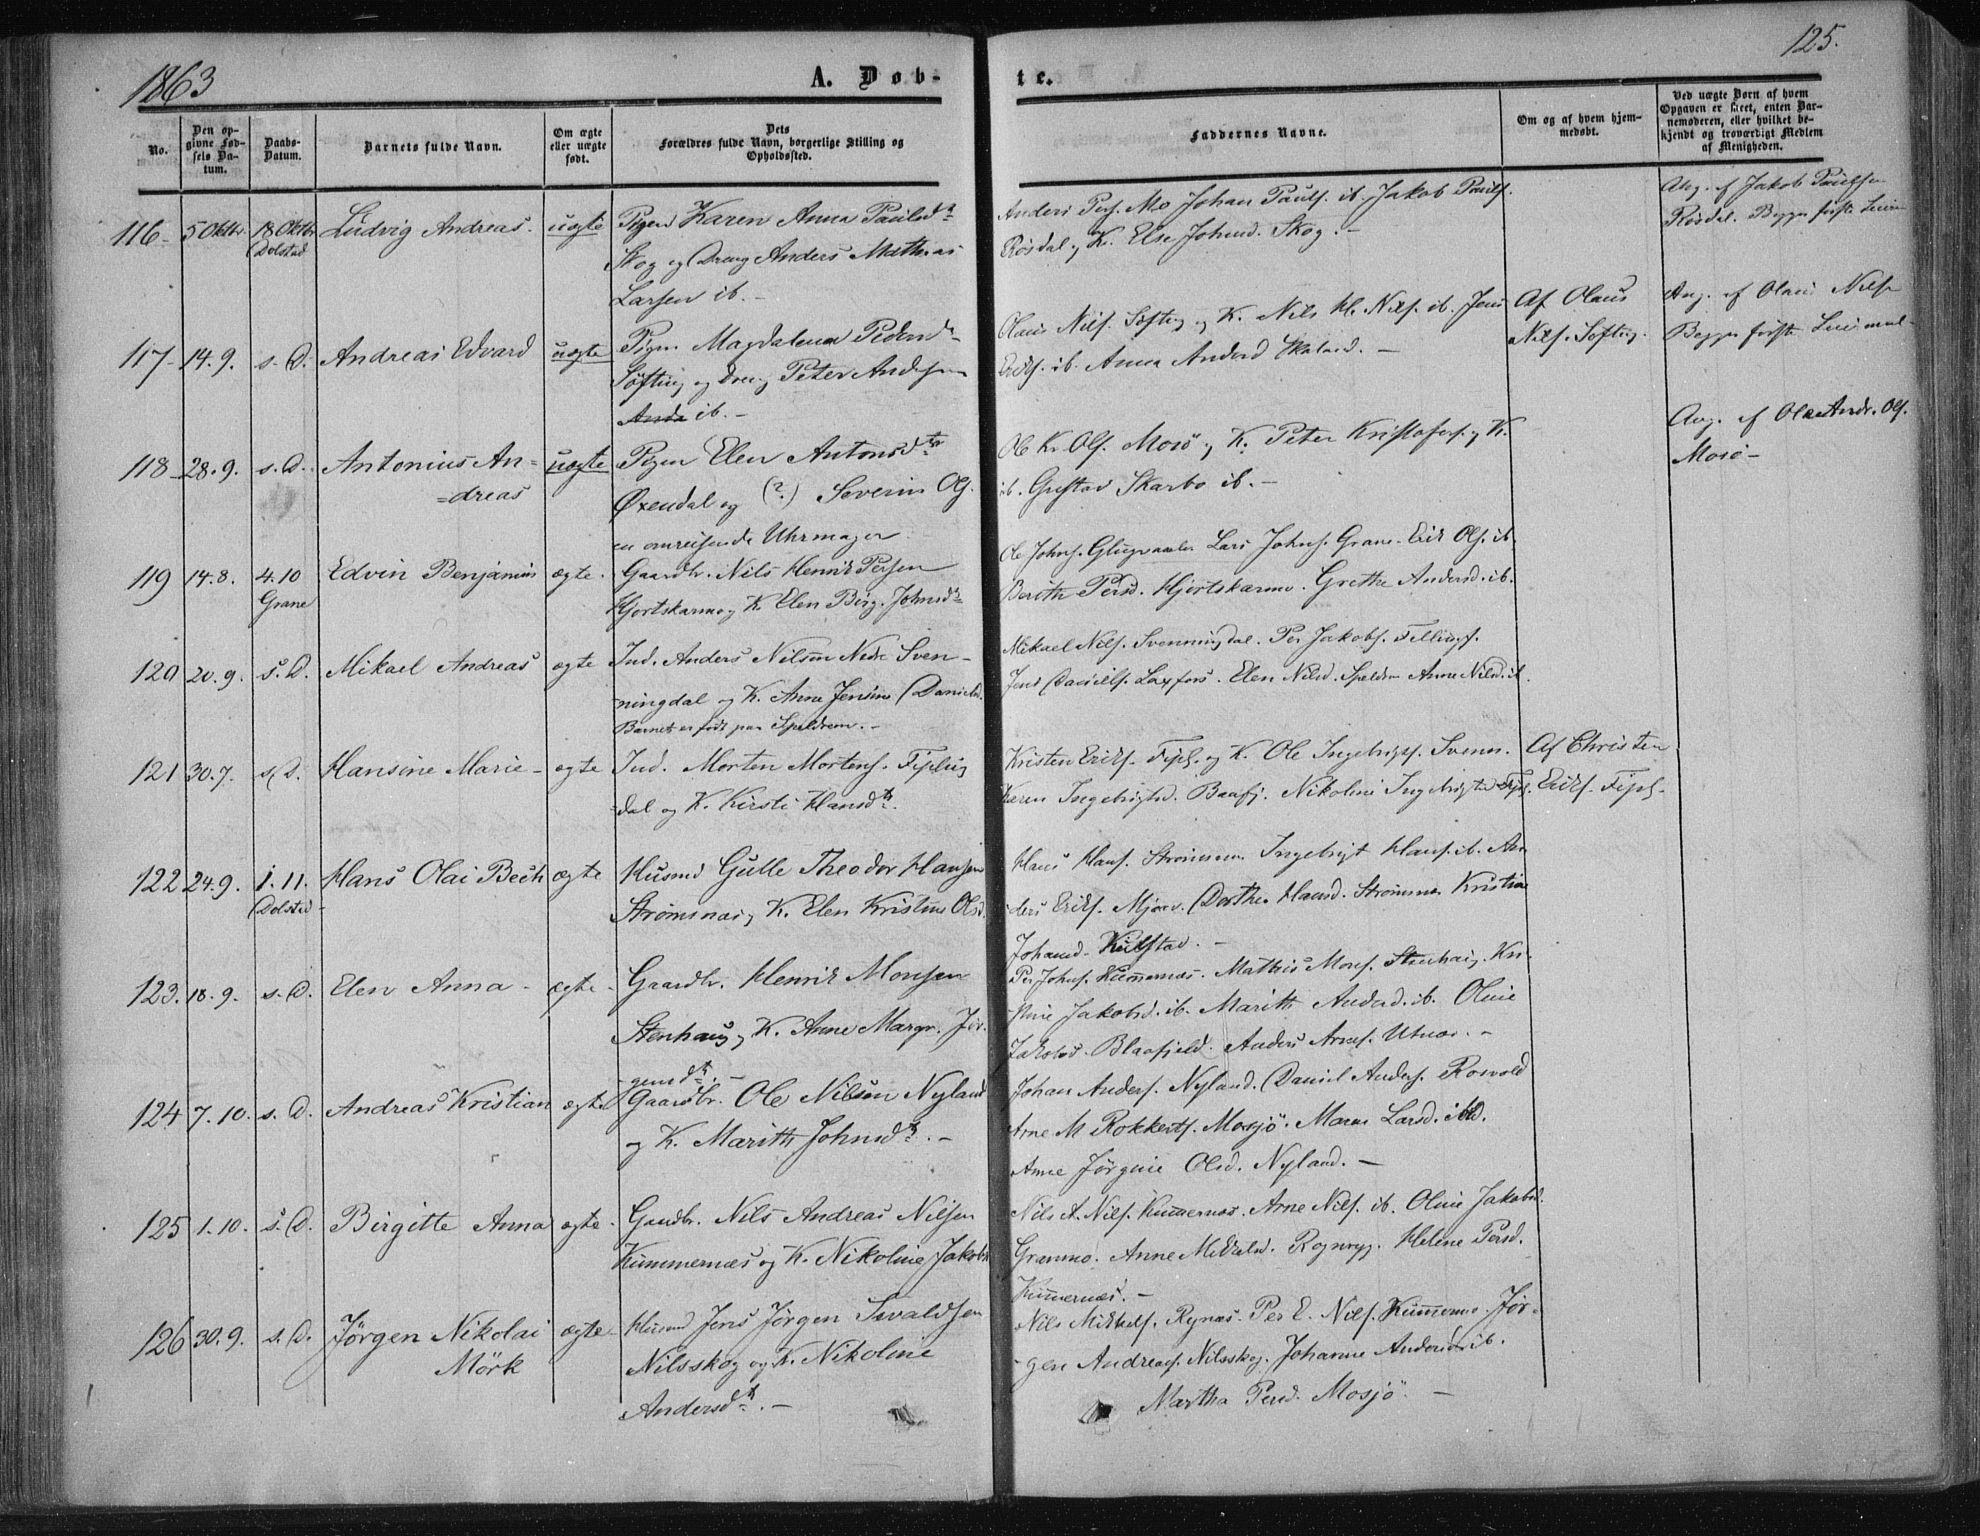 1863
A. Døb-
te.
125.
No.
Den op-
givne Fød-
sels Da-
tum.
Daabs-
Datum.
Barnets fulde Navn.
Om ægte
eller uægte
født.
Dets
Forældres fulde Navn, borgerlige Stilling og
Opholdssted.
Faddernes Navne.
Om og af hvem hjem-
medøbt.
Ved uægte Børn af hvem
Opgaven er skeet, enten Bar-
nemoderen, eller hvilket be-
kjendt og troværdigt Medlem
af Menigheden.
116 5 Oktbr. 18 Oktbr. Ludvig Andreas. uægte Pigen Karen Anna Paulsdtr
Dolstad
Skog og Dreng Anders Mathias
Larsen ib.
Anders Pers. Mo Johan Pauls. ib. Jakob Pauls.
Røsdal og K. Else Johnsd. Skog.
Ang. af Jakob Paulsen
Røsdal. Begges første Leier-
117 14.9. s.D. Andreas Edvard uægte Pigen Magdalena Pedersdtr
Søfting og Dreng Peter Andersen
ib.
Olaus Nils. Søfting og K. Nils Nils. ib. Jens
Eriks. ib. Anna Andersd. Skaland.
Af Olaus
Nils. Søfting.
Ang. af Olaus Nils.
Begges første Leiermaal
118 28.9. s.D. Antonius An-
=dreas
uægte Pigen Elen Antonsdtr
Øxendal og (?) Severin Ols.
en omreisende Uhrmager.
Ole Kr. Ols. Mosjö og K. Peter Kristofers. og K.
ib. Gustav Skarbo ib.
Ang. af Ole Andr. Ols.
119 14.8. 4.10 Edvin Benjamin ægte Gaardbr. Nils Henrik Persen
Grane
Hjortskarmo og K. Elen Birg. Johnsdtr
Ole Johns. Lars Johns. Grane. Erik Ols. ib.
Persd. Hjortskarmo. Grethe Andersd. ib.
120 20.9. s.D. Mikael Andreas ægte Ind. Anders Nilsen Nedre Sven-
ningdal og K. Anne Daniels.
Barnet er født paa Speldrem.
Mikael Nils. Svenningdal. Per Jakobs.
Jens Daniels. Laxfors. Elen Nilsd. Speldrem Anne Nilsd. ib.
121 30.7. s.D. Hansine Marie ægte Ind. Morten Mortens. Fiplin-
dal og K. Kirsti Hansdtr.
Kristen Eriks. Fipl. og K. Ole Ingebrigts. Svenn.
Karen Ingebrigtsd. Nikoline Ingebrigtsd. Fipl.
Af Christen
Eriks. Fipl.
122 24.9. 1.11. Hans Olai Bech ægte Husmd Gulle Theodor Hansen
Dolstad
Strømsnæs og K. Elen Kristine Olsd.
Hans Hans. Strømsnæs. Ingebrigt Hans. ib. An-
ders Eriks. Dorthe Hansd. Strømsnæs Kristine
Johansd. Kulstad.
123. 18.9. s.D. Elen Anna ægte Gaardbr. Henrik Monsen
Stenhaug og K. Anne Margr. Jør-
gensdtr.
Per Johns. Kummernæs. Mathias Mons. Stenhaug. Kri-
stine Jakobsd. ib. Marith Andersd. ib. Oline
Jakobsd. Blaafjeld. Anders Arnes. Utnæs.
124 7.10. s.D. Andreas Kristian ægte Gaardbr. Ole Nilsen Nyland
og K. Marith Johnsdtr.
Johan Anders. Nyland. Daniel Anders.
Arne M. Mosjö. Maren Larsd. ibd.
Anne Jørgine Olsd. Nyland.
125 1.10. s.D. Birgitte Anna ægte Gaardbr. Nils Andreas Nilsen
Kummernæs og K. Nikoline Jakobs.
Nils A. Nils. Kummernæs. Arne Nils. ib. Oline Jakobsd.
Granmo. Anne Mikalsd. Rognryg. Helene Persd.
Kummernæs.
126 30.9. s.D. Jørgen Nikolai
Mörk
ægte Husmd Jens Jørgen Sivaldsen
Nilsskog og K. Nikoline
Andersdtr.
Nils Mikkels. Rynæs. Per E. Nils. Jør-
gen Andreas. Nilsskog. Johanne Andersd. ib.
Martha Persd. Mosjö.